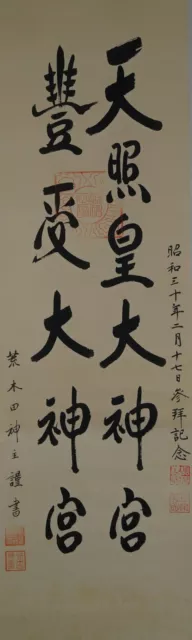 昭和三十年二月十七日参拝記念
天照皇大神宮
豐受大神宮
荒木田神主謹書